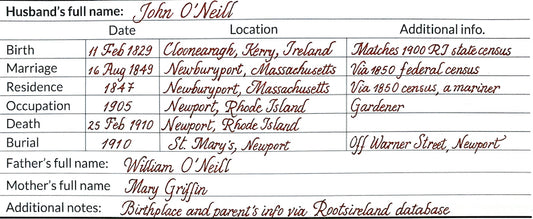 Husband's full name: John O'Neill
Date Location Additional info.
Birth 11 Feb 1829 Clooneanagh, Kerry, Ireland Matches 1900 RI state census
Marriage 16 Aug 1849 Newburyport, Massachusetts Via 1850 federal census
Residence 1847 Newburyport, Massachusetts Via 1850 census, a mariner
Occupation 1905 Newport, Rhode Island Gardener
Death 25 Feb 1910 Newport, Rhode Island
Burial 1910 St. Mary's, Newport Off Warner Street, Newport
Father's full name: William O'Neill
Mother's full name Mary Griffin
Additional notes: Birthplace and parent's info via Rootsireland database